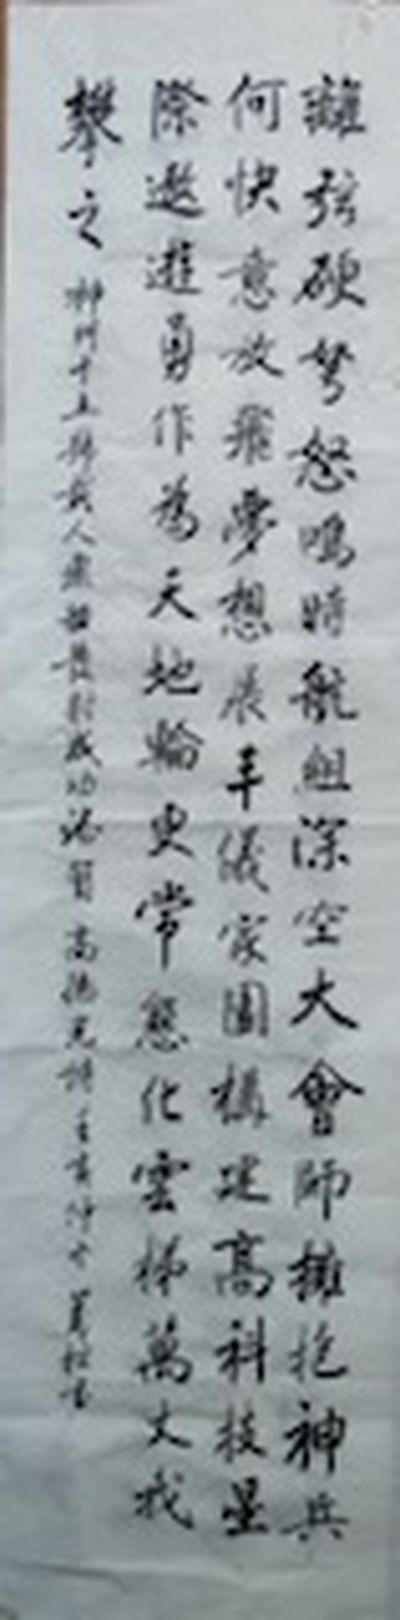 離弦硬弩怒鳴時航組深空大會師擁抱神兵
何快意放飛夢想展丰儀家園構建高科技星
際遨遊勇作為天地輪更常態化雲梯萬丈我
攀之 神州十五號載人飛船發射成功誌賀 高 詩 壬寅仲冬 書